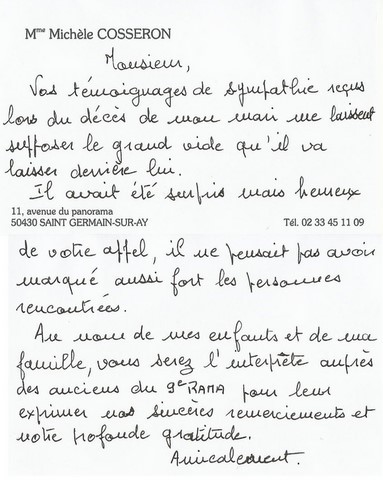 Mme Michèle COSSERON
Monsieur,
Vos témoignages de sympathie reçus
lors du décès de mon mari me laissent
supposer le grand vide qu'il va
laisser derrière lui.
Il avait été surpris mais heureux
11, avenue du panorama
50430 SAINT GERMAIN-SUR-AY Tél. 02 33 45 11 09
de votre appel, il ne pensait pas avoir
marqué aussi fort les personnes
rencontrées.
Au nom de mes enfants et de ma
famille, vous serez l'interprète auprès
des anciens du 9e RAMA pour leur
exprimer nos sincères remerciements et
notre profonde gratitude.
Amicalement.